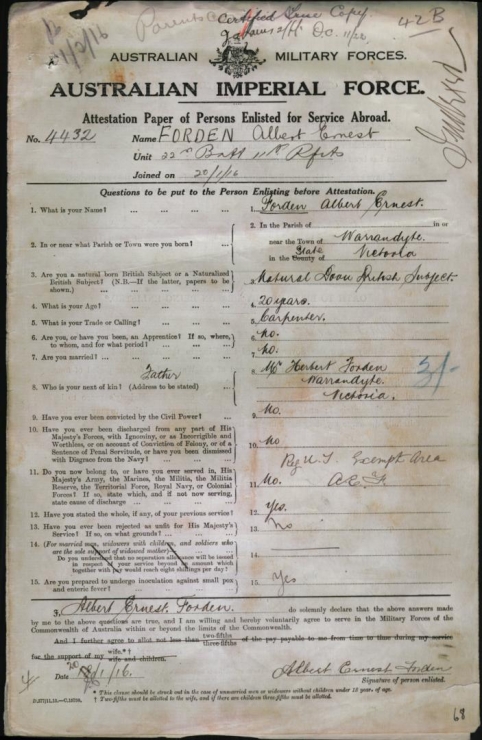 Parents
Certified True Copy.
42B
AUSTRALIAN MILITARY FORCES.
AUSTRALIAN IMPERIAL FORCE.
Attestation Paper of Persons Enlisted for Service Abroad.
No. 4432 Name FORDEN Albert Ernest
Unit 22nd Batt 11th Rfts
Joined on 20/1/16
Questions to be put to the Person Enlisting before Attestation.
1. What is your Name? ... ... ... ... 1. Forden Albert Ernest.
2. In or near what Parish or Town were you born? ... 2. In the Parish of in or
near the Town of Warrandyte.
in the County of State Victoria
3. Are you a natural born British Subject or a Naturalized
British Subject? (N.B.—If the latter, papers to be
shown.) ... ... ... 3. Natural Born British Subject.
4. What is your Age? ... ... ... ... 4. 20 years.
5. What is your Trade or Calling? ... ... ... 5. Carpenter.
6. Are you, or have you been, an Apprentice? If so, where,
to whom, and for what period? ... ... ... 6. No.
7. Are you married? ... ... ... ... 7. No.
Father
8. Who is your next of kin? (Address to be stated) 8. Mr Herbert Forden
Warrandyte.
Victoria.
3/-
9. Have you ever been convicted by the Civil Power? ... 9. No.
10. Have you ever been discharged from any part of His
Majesty's Forces, with Ignominy, or as Incorrigible and
Worthless, or on account of Conviction of Felony, or of a
Sentence of Penal Servitude, or have you been dismissed
with Disgrace from the Navy? ... ... 10. No
Exempt Area
11. Do you now belong to, or have you ever served in, His
Majesty's Army, the Marines, the Militia, the Militia
Reserve, the Territorial Force, Royal Navy, or Colonial
Forces? If so, state which, and if not now serving,
state cause of discharge ... ... ... 11. No.
12. Have you stated the whole, if any, of your previous service? 12. Yes.
13. Have you ever been rejected as unfit for His Majesty's
Service? If so, on what grounds? ... ... 13. No
14. (For married men, widowers with children, and soldiers who
are the sole support of widowed mother)—
Do you understand that no separation allowance will be issued
in respect of your service beyond an amount which
together with pay would reach eight shillings per day? 14.
15. Are you prepared to undergo inoculation against small pox
and enteric fever? ... ... ... 15. Yes
I, Albert Ernest Forden. do solemnly declare that the above answers made
by me to the above questions are true, and I am willing and hereby voluntarily agree to serve in the Military Forces of the
Commonwealth of Australia within or beyond the limits of the Commonwealth.
And I further agree to allot not less than two-fifths three-fifths of the pay payable to me from time to time during my service
for the support of my wife.*† wife and children.
Date 20/1/16.
Albert Ernest Forden
Signature of person enlisted.
* This clause should be struck out in the case of unmarried men or widowers without children under 18 years of age.
† Two-fifths must be allotted to the wife, and if there are children three-fifths must be allotted.
68